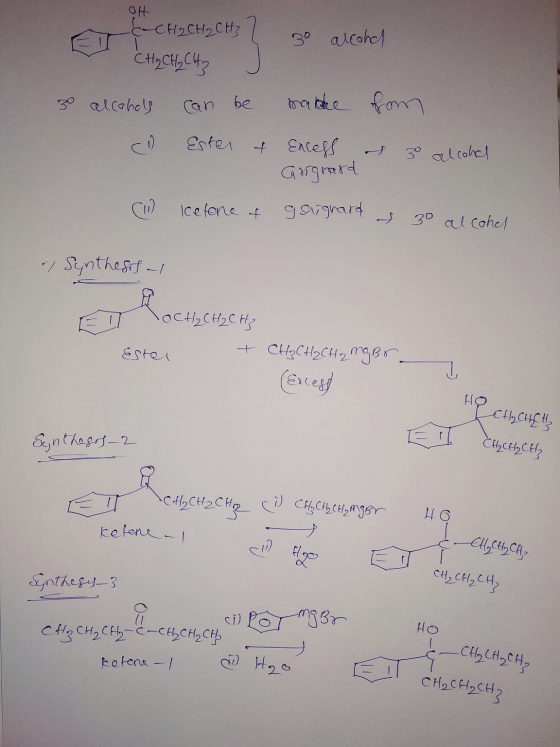 OH
C-CH2CH2CH3
CH2CH2CH3
3° alcohol
3° alcohols can be made from
(i) Ester + Excess Grignard → 3° alcohol
(ii) ketone + grignard → 3° alcohol
Synthesis-1
O
OCH2CH2CH3
Ester
+ CH3CH2CH2MgBr
(Excess)
HO
CH2CH2CH3
CH2CH2CH3
Synthesis-2
O
CH2CH2CH3
ketone-1
(i) CH3CH2CH2MgBr
(ii) H2O
HO
C-CH2CH2CH3
CH2CH2CH3
Synthesis-3
O
CH3CH2CH2-C-CH2CH2CH3
ketone-1
(i) MgBr
(ii) H2O
HO
C-CH2CH2CH3
CH2CH2CH3